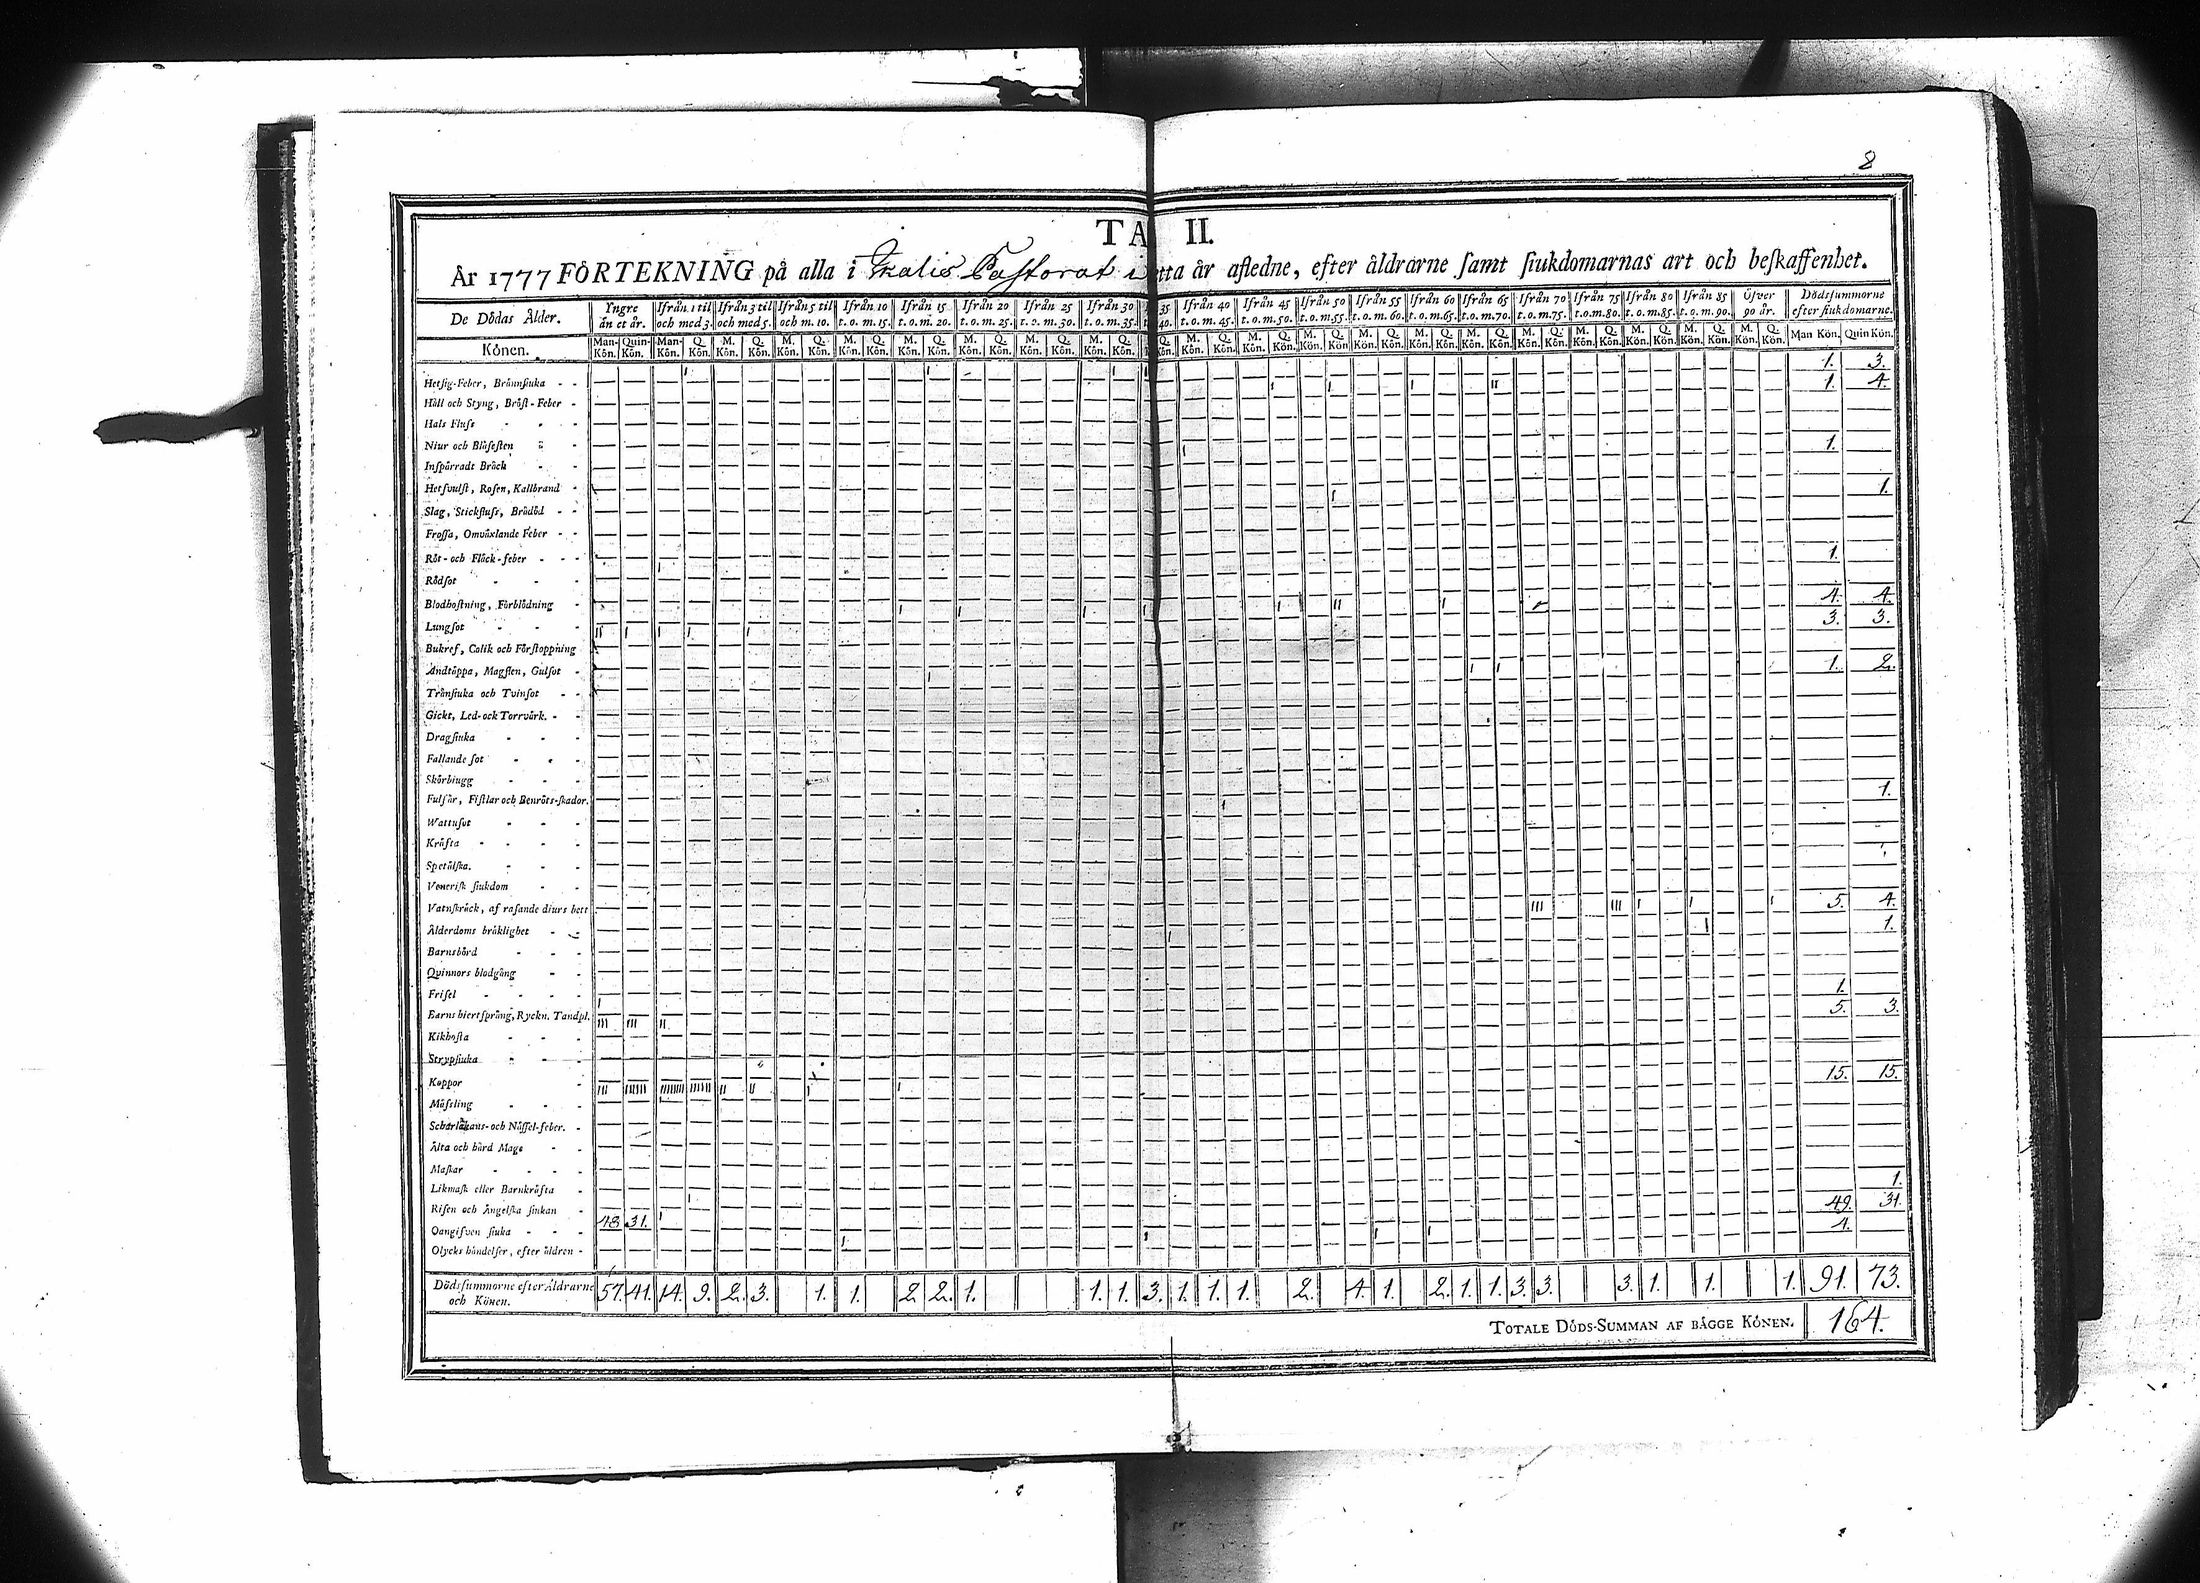 8
TA II.
År 1777 FÖRTEKNING på alla i Ikalis Pastorat i etta år afledne, efter åldrarne samt siukdomarnas art och beskaffenhet.
De Dödas Ålder. Yngre än et år. Ifrån 1 til och med 3. Ifrån 3 til och med 5. Ifrån 5 til och m. 10. Ifrån 10 t. o. m. 15. Ifrån 15 t. o. m. 20. Ifrån 20 t. o. m. 25. Ifrån 25 t. o. m. 30. Ifrån 30 t. o. m. 35. 35 40. Ifrån 40 t. o. m. 45. Ifrån 45 t. o. m. 50. Ifrån 50 t. o. m. 55. Ifrån 55 t. o. m. 60. Ifrån 60 t. o. m. 65. Ifrån 65 t. o. m. 70. Ifrån 70 t. o. m. 75. Ifrån 75 t. o. m. 80. Ifrån 80 t. o. m. 85. Ifrån 85 t. o. m. 90. Öfver 90 år. Dödsummorne efter siukdomarne.
Könen. Man-Kön. Quin-Kön. Man-Kön. Q. Kön. M. Kön. Q. Kön. M. Kön. Q. Kön. M. Kön. Q. Kön. M. Kön. Q. Kön. M. Kön. Q. Kön. M. Kön. Q. Kön. M. Kön. Q. Kön. Kön. M. Kön. Q. Kön. M. Kön. Q. Kön. M. Kön. Q. Kön. M. Kön. Q. Kön. M. Kön. Q. Kön. M. Kön. Q. Kön. M. Kön. Q. Kön. M. Kön. Q. Kön. M. Kön. Q. Kön. M. Kön. Q. Kön. M. Kön. Q. Kön. Man Kön. Quin Kön.
Hetsig-Feber, Brännsiuka 1. 3.
Håll och Styng, Bröst-Feber 1. 4.
Hals Fluss
Niur och Blåsesten
Inspärradt Bråck 1.
Hetsvulst, Rosen, Kallbrand
Slag, Stickfluss, Brådöd 1.
Frossa, Omväxlande Feber
Röt- och Fläck-feber
Rödsot 1.
Blodhostning, Förblödning
Lungsot 4. 4.
Bukref, Colik och Förstoppning 3. 3.
Andtäppa, Magsten, Gulsot
Trånsiuka och Tvinsot 1. 2.
Gickt, Led- och Torrvärk.
Dragsiuka
Fallande sot
Skörbiugg
Fulsår, Fistlar och Benröts-skador.
Wattusot 1.
Kräfta
Spetälska.
Venerisk siukdom
Vatnskräck, af rasande diurs bett
Ålderdoms bräklighet 5. 4.
Barnsbörd 1.
Qvinnors blodgång
Frisel
Barns hiertsprång, Ryckn. Tandpl. 1.
Kikhosta 5. 3.
Strypsiuka
Koppor 15. 15.
Mässling
Scharlakans- och Nässel-feber.
Älta och hård Mage
Maskar
Likmask eller Barnkräfta
Risen och Ängelska siukan 1.
Oangifven siuka 48 31. 49. 31.
Olycks händelser, efter åldren 4.
Dödssummorne efter Åldrarne och Könen. 57. 41. 14. 9. 2. 3. 1. 1. 2 2. 1. 1. 1. 3. 1. 1. 1. 2. 4. 1. 2. 1. 1. 3. 3. 3. 1. 1. 1. 91. 73.
TOTALE DÖDS-SUMMAN AF BÅGGE KÖNEN. 164.